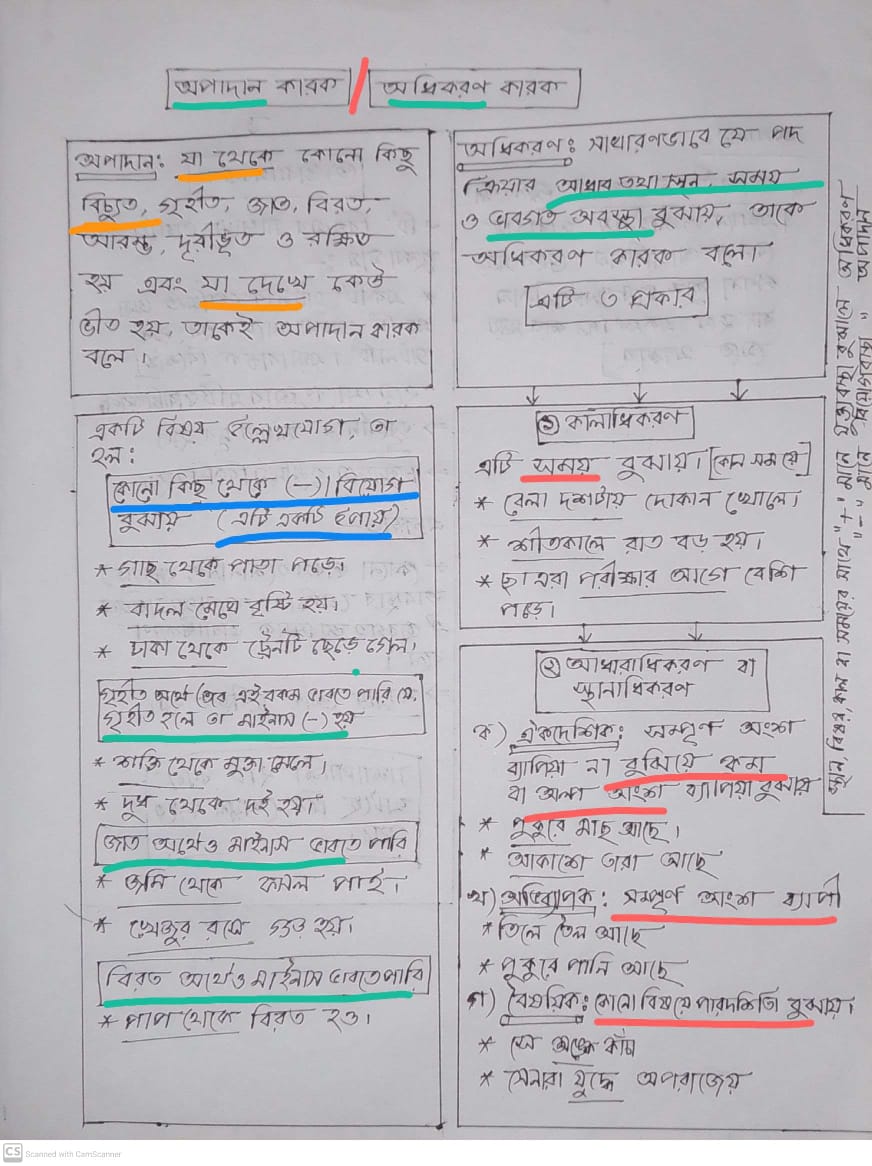 অপাদান কারক / অধিকরণ কারক
অপাদান: যা থেকে কোনো কিছু
বিচ্যুত, গৃহীত, জাত, বিরত,
আরম্ভ, দূরীভূত ও রক্ষিত
হয় এবং যা দেখে কেউ
ভীত হয়, তাকেই অপাদান কারক
বলে।
একটি বিষয় উল্লেখযোগ্য, তা
হল:
কোনো কিছু থেকে (-)। বিয়োগ
বুঝায় (এটি একটি উপায়)
* গাছ থেকে পাতা পড়ে।
* বাদল মেঘে বৃষ্টি হয়।
* ঢাকা থেকে ট্রেনটি ছেড়ে গেল।
গৃহীত অর্থে এই রকম ভাবতে পারি যে,
গৃহীত হলে তা মাইনাস (-) হয়
* শুক্তি থেকে মুক্তা মেলে।
* দুধ থেকে দই হয়।
জাত অর্থেও মাইনাস ভাবতে পারি
* জমি থেকে ফসল পাই।
* খেজুর রসে গুড় হয়।
বিরত অর্থেও মাইনাস ভাবতে পারি
* পাপ থেকে বিরত হও।
অধিকরণ: সাধারণভাবে যে পদ
ক্রিয়ার আধার তথা স্থান, সময়
ও ভাবগত অবস্থা বুঝায়, তাকে
অধিকরণ কারক বলে।
এটি ৩ প্রকার
① কালাধিকরণ
এটি সময় বুঝায়। [কোন সময়ে]
* বেলা দশটায় দোকান খোলে।
* শীতকালে রাত বড় হয়।
* ছাত্ররা পরীক্ষার আগে বেশি
পড়ে।
② আধারাধিকরণ বা
স্থানাধিকরণ
ক) ঐকদেশিক: সম্পূর্ণ অংশ
ব্যাপিয়া না বুঝিয়ে কম
বা অল্প অংশ ব্যাপিয়া বুঝায়
* পুকুরে মাছ আছে।
* আকাশে তারা আছে
খ) অভিব্যাপক: সম্পূর্ণ অংশ ব্যাপী
* তিলে তৈল আছে
* পুকুরে পানি আছে
গ) বৈষয়িক: কোনো বিষয়ে পারদর্শিতা বুঝায়।
* সে অঙ্কে কাঁচা
* সেনারা যুদ্ধে অপরাজেয়
স্থান, বিষয়, কাল বা সময়ের সাথে "+" মানে যুক্তাবস্থা বুঝালে অধিকরণ
"-" মানে বিয়োগাবস্থা " অপাদান
CS Scanned with CamScanner